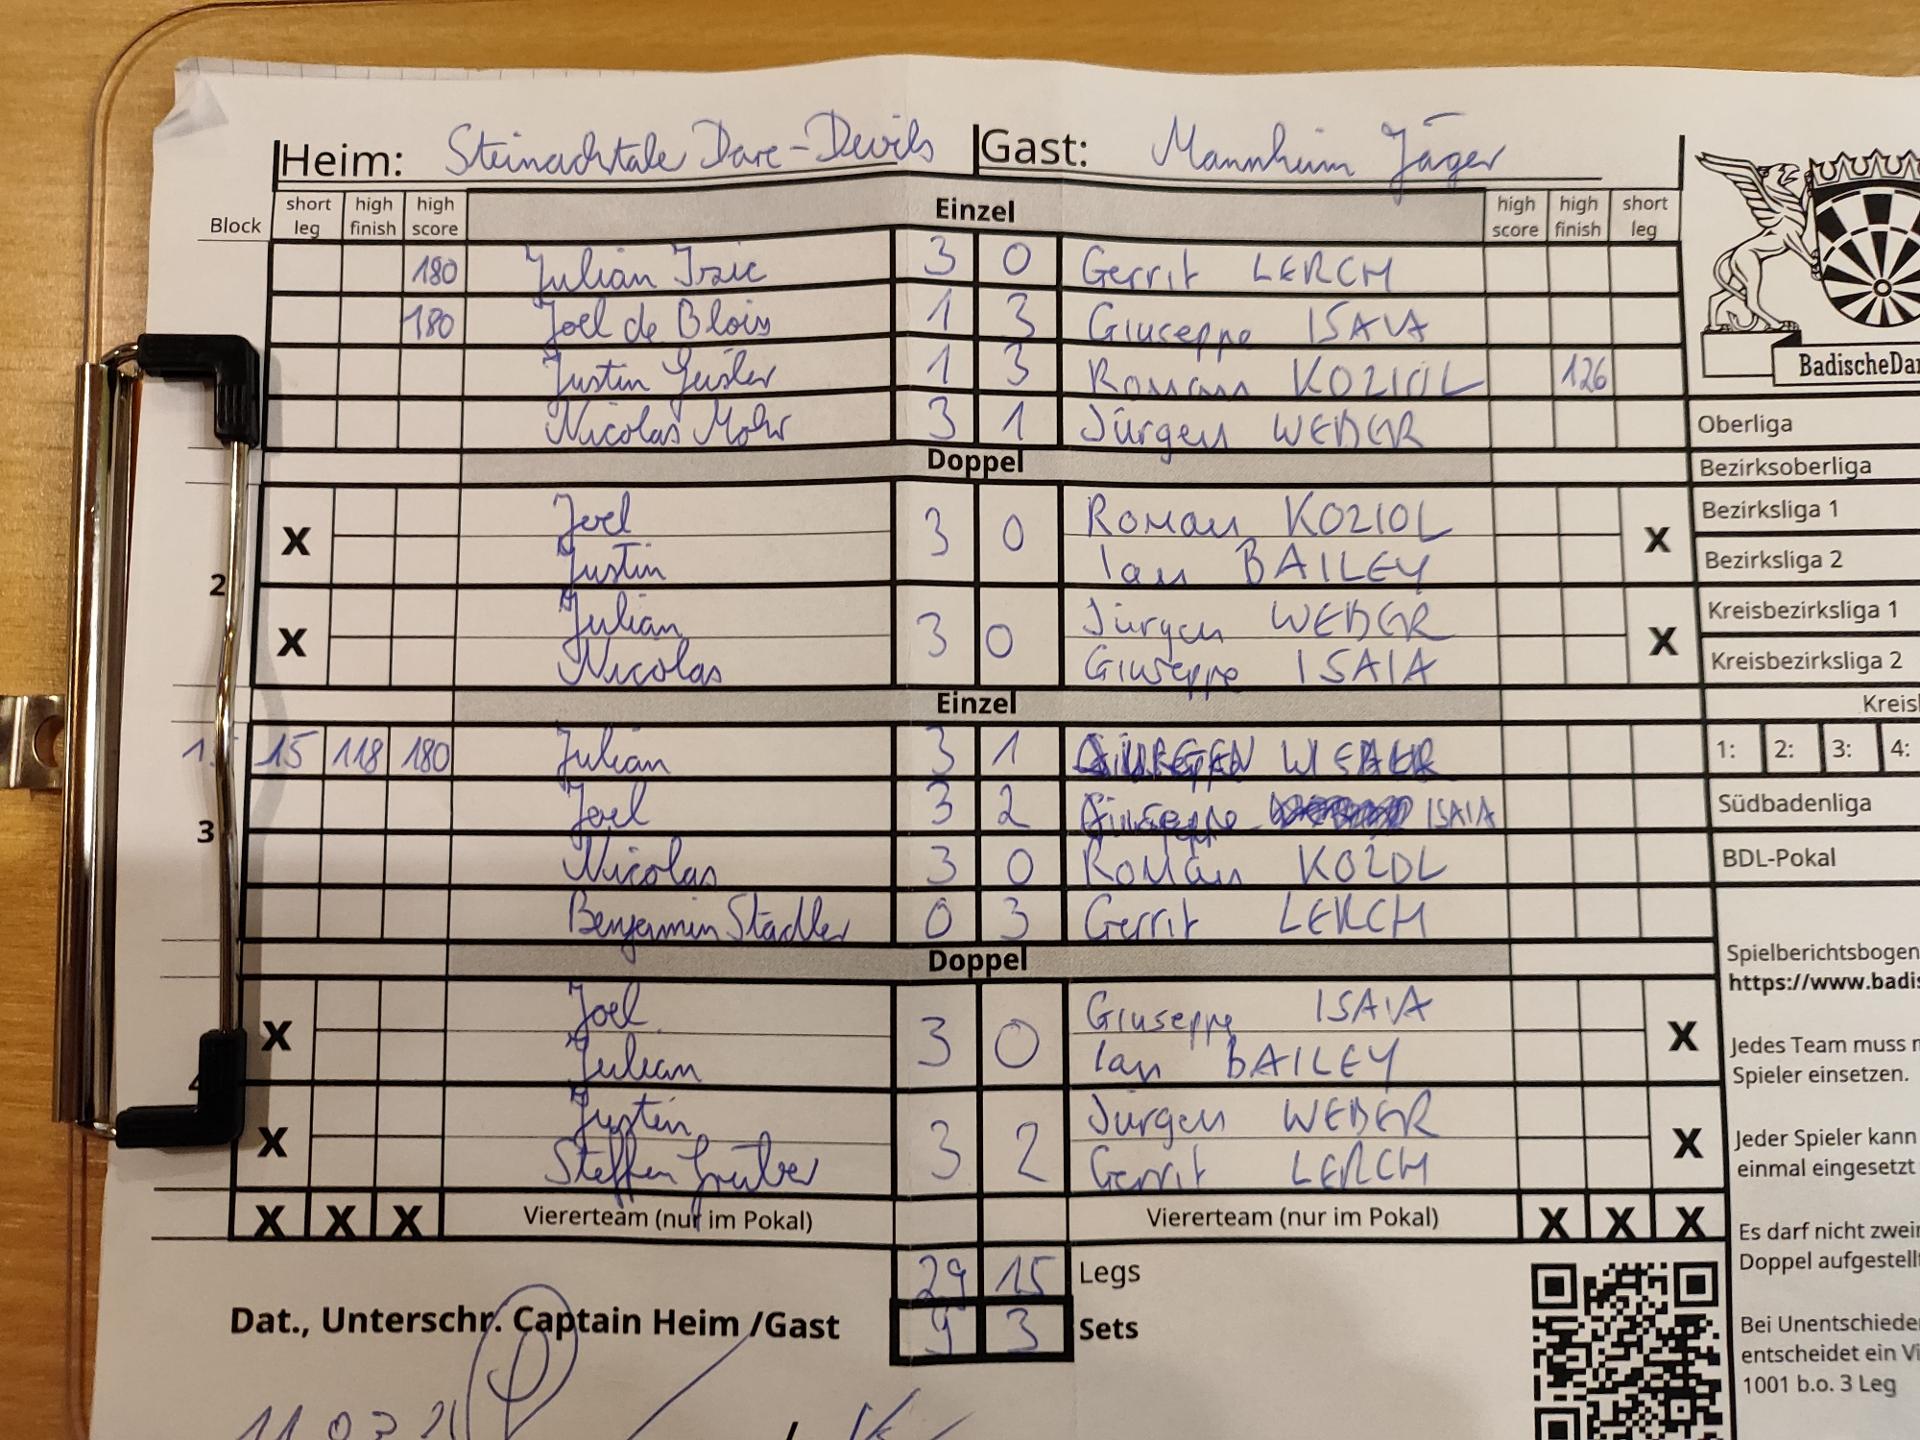 Heim: Steinachtale Dare-Devils Gast: Mannheim Jäger
Block short leg high finish high score Einzel high score high finish short leg
180 Julian Izic 3 0 Gerrit LERCH
180 Joel de Blois 1 3 Giuseppe ISAIA
Justin Geisler 1 3 Roman KOZIOL 126
BadischeDar
Nicolas Mohr 3 1 Jürgen WEBER
Oberliga
Doppel
Bezirksoberliga
2
X Joel 3 0 Roman KOZIOL X
Justin Ian BAILEY
Bezirksliga 1
Bezirksliga 2
X Julian 3 0 Jürgen WEBER X
Nicolas Giuseppe ISAIA
Kreisbezirksliga 1
Kreisbezirksliga 2
Einzel
Kreisl
3
15 118 180 Julian 3 1 JÜRGEN WEBER
1: 2: 3: 4:
Joel 3 2 Giuseppe ISAIA
Südbadenliga
Nicolas 3 0 Roman KOZOL
BDL-Pokal
Benjamin Stadler 0 3 Gerrit LERCH
Doppel
Spielberichtsbogen
https://www.badis
4
X Joel 3 0 Giuseppe ISAIA X
Julian Ian BAILEY
Jedes Team muss m
Spieler einsetzen.
X Justin 3 2 Jürgen WEBER X
Steffen Gruber Gerrit LERCH
Jeder Spieler kann
einmal eingesetzt
X X X Viererteam (nur im Pokal) Viererteam (nur im Pokal) X X X
Es darf nicht zweim
Doppel aufgestellt
29 15 Legs
Dat., Unterschr. Captain Heim /Gast 9 3 Sets
Bei Unentschieden
entscheidet ein Vi
1001 b.o. 3 Leg